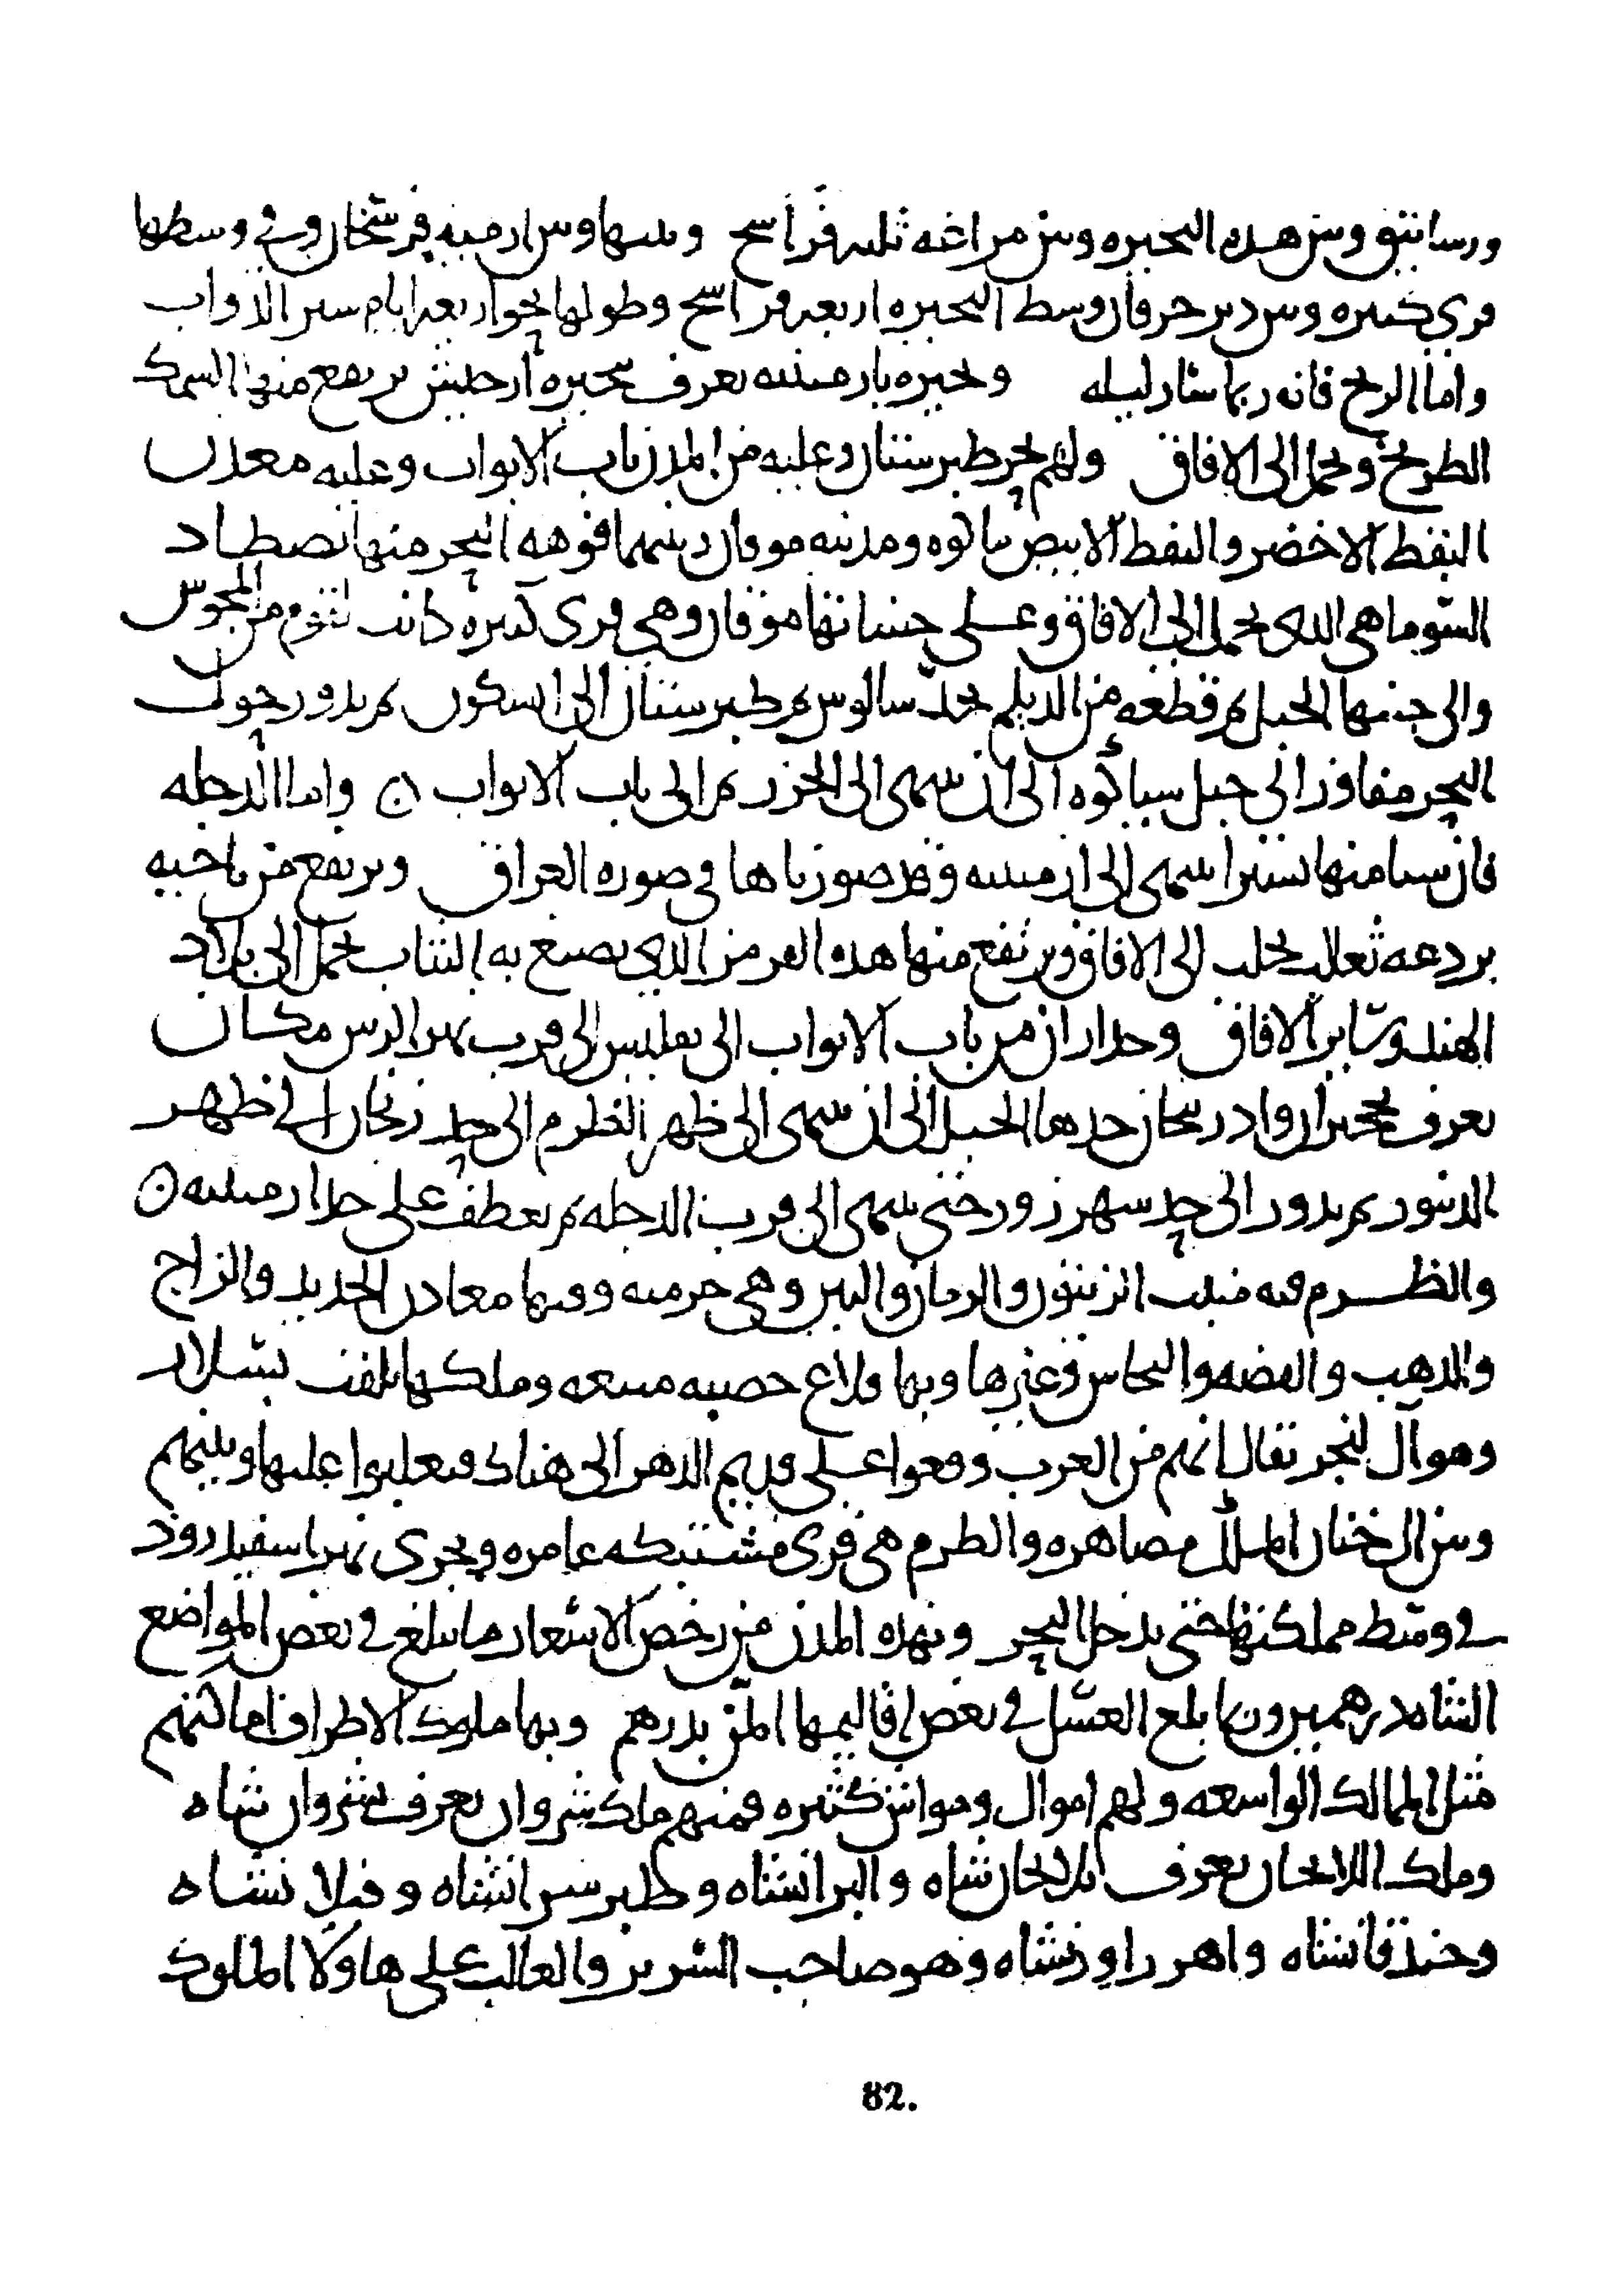 ورساتيق وبين هذه البحيره وبين مراغه ثلثه فراسخ وبينها وبين ارمية فرسخان وفي وسطها
قرى كثيره وبين دير خرقان وسط البحيره اربعه فراسخ وطولها نحو اربعه ايام سير الدواب
واما الريح فانه ربما سار ليله وبحيره بارمينيه تعرف ببحيره ارجيش يرتفع منها السمك
الطريخ ويحمل الى الافاق ولهم بحر طبرستان وعليه من المدن باب الابواب وعليه معدن
النفط الاخضر والنفط الابيض بباكوه ومدينه موقان وبينهما فوهه البحر منها تصطاد
الشوماهى الذى يحمل الى الافاق وعلى جنباتها موقان وهي قرى كثيره كانت لقوم من المجوس
والى جنبها الجبل ثم قطعه من الديلم بحد سالوس ثم طبرستان الى ابسكون ثم يدور حول
البحر مفاوز الى جبل سياكوه الى ان ينتهى الى الخزر ثم الى باب الابواب واما الدجله
فان شيا منها يسيرا ينتهى الى ارمينيه وقد صورناها في صوره العراق ويرتفع من ناحيه
بردعه ثعالب يجلب الى الافاق ويرتفع منها هذه القرمز الذي يصبغ به الثياب يحمل الى بلاد
الهند وسائر الافاق وحد اران من باب الابواب الى تفليس الى قرب نهر الرس مكان
يعرف بحجيران واذربيجان حدها الجبل الى ان ينتهى الى ظهر الطرم الى حد زنجان الى ظهر
الدينور ثم يدور الى حد سهرزور حتى ينتهى الى قرب الدجله ثم يعطف على حد ارمينيه
والطرم فيه منبت الزيتون والرمان والتين وهي جرميه وفيها معادن الحديد والزاج
والذهب والفضه والنحاس وغيرها وبها قلاع حصينه منيعه وملكها يلقب بسلار
وهو آل لنجر يقال انهم من العرب وقعوا على قديم الدهر الى هناك فتغلبوا عليها وبينهم
وبين ال خنان الملك مصاهره والطرم هي قرى مشتبكه عامره ويجرى نهر اسفيدروذ
في وسط مملكتها حتى يدخل البحر وبهذه المدن من رخص الاسعار ما يبلغ في بعض المواضع
الشاه درهمين وربما بلغ العسل في بعض اقاليمها المن بدرهم وبها ملوك الاطراف امالكهم
مثل الممالك الواسعه ولهم اموال ومواش كثيره فمنهم ملك شروان يعرف بشروان شاه
وملك اللايجان يعرف بلايجان شاه والبرانشاه وطبرسرانشاه وفيلانشاه
وخيذقانشاه واهر راونشاه وهو صاحب السرير والغالب على هاولا الملوك
82.